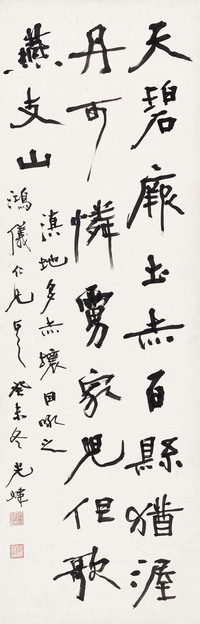 天碧厥土赤百縣猶渥
丹可憐家兒但歌
燕支山
滇地多赤壤因咏之
鴻儀仁兄 癸未冬 光煒